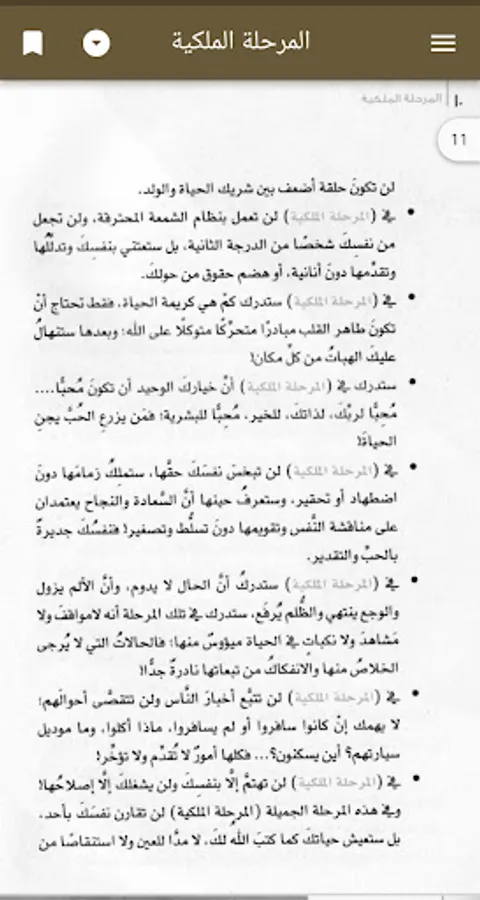 المرحلة الملكية
١٠ المرحلة الملكية
11
لن تكونَ حلقة أضعف بين شريك الحياة والولد.
• في (المرحلة الملكية) لن تعمل بنظام الشمعة المحترقة، ولن تجعل
من نفسِكَ شخصًا من الدرجة الثانية، بل ستعتني بنفسِكَ وتدلِّلُها
وتقدِّمها دونَ أنانية، أو هضم حقوق من حولكَ.
• في (المرحلة الملكية) ستدرك كمْ هي كريمة الحياة، فقط تحتاج أنْ
تكونَ طاهر القلب مبادرًا متحرِّكًا متوكلًا على الله؛ وبعدها ستنهالُ
عليكَ الهباتُ من كلِّ مكان!
• ستدرك في (المرحلة الملكية) أنَّ خياركَ الوحيد أن تكونَ مُحِبًّا....
مُحِبًّا لربِّكَ، لذاتكَ، للخير، مُحِبًّا للبشرية؛ فمَن يزرعِ الحُبَّ يجنِ
الحياةَ!
• في (المرحلة الملكية) لن تبخسَ نفسَكَ حقَّها، ستملِكُ زمامَها دونَ
اضطهاد أو تحقير، وستعرفُ حينها أنَّ السَّعادة والنجاح يعتمدان
على مناقشة النَّفس وتقويمها دونَ تسلُّط وتصغير! فنفسُكَ جديرةٌ
بالحبِّ والتقدير.
• في (المرحلة الملكية) ستدركُ أنَّ الحال لا يدوم، وأنَّ الألم يزول
والوجع ينتهي والظُّلم يُرفَع، ستدرك في تلك المرحلة أنه لامواقفَ ولا
مَشاهدَ ولا نكباتٍ في الحياة ميؤوسٌ منها؛ فالحالاتُ التي لا يُرجى
الخلاصُ منها والانفكاكُ من تبعاتها نادرةٌ جدًّا!
• في (المرحلة الملكية) لن تتبَّع أخبارَ النَّاس ولن تتقصَّى أحوالَهم؛
لا يهمك إنْ كانوا سافروا أو لم يسافروا، ماذا أكلوا، وما موديل
سيارتهم؟ أين يسكنون؟... فكلها أمورٌ لا تُقدِّم ولا تؤخِّر!
• في (المرحلة الملكية) لن تهتمَّ إلَّا بنفسِكَ ولن يشغلكَ إلَّا إصلاحُها!
وفي هذه المرحلة الجميلة (المرحلة الملكية) لن تقارن نفسَكَ بأحد،
بل ستعيش حياتكَ كما كتبَ اللهُ لكَ، لا مدًّا للعين ولا استنقاصًا من